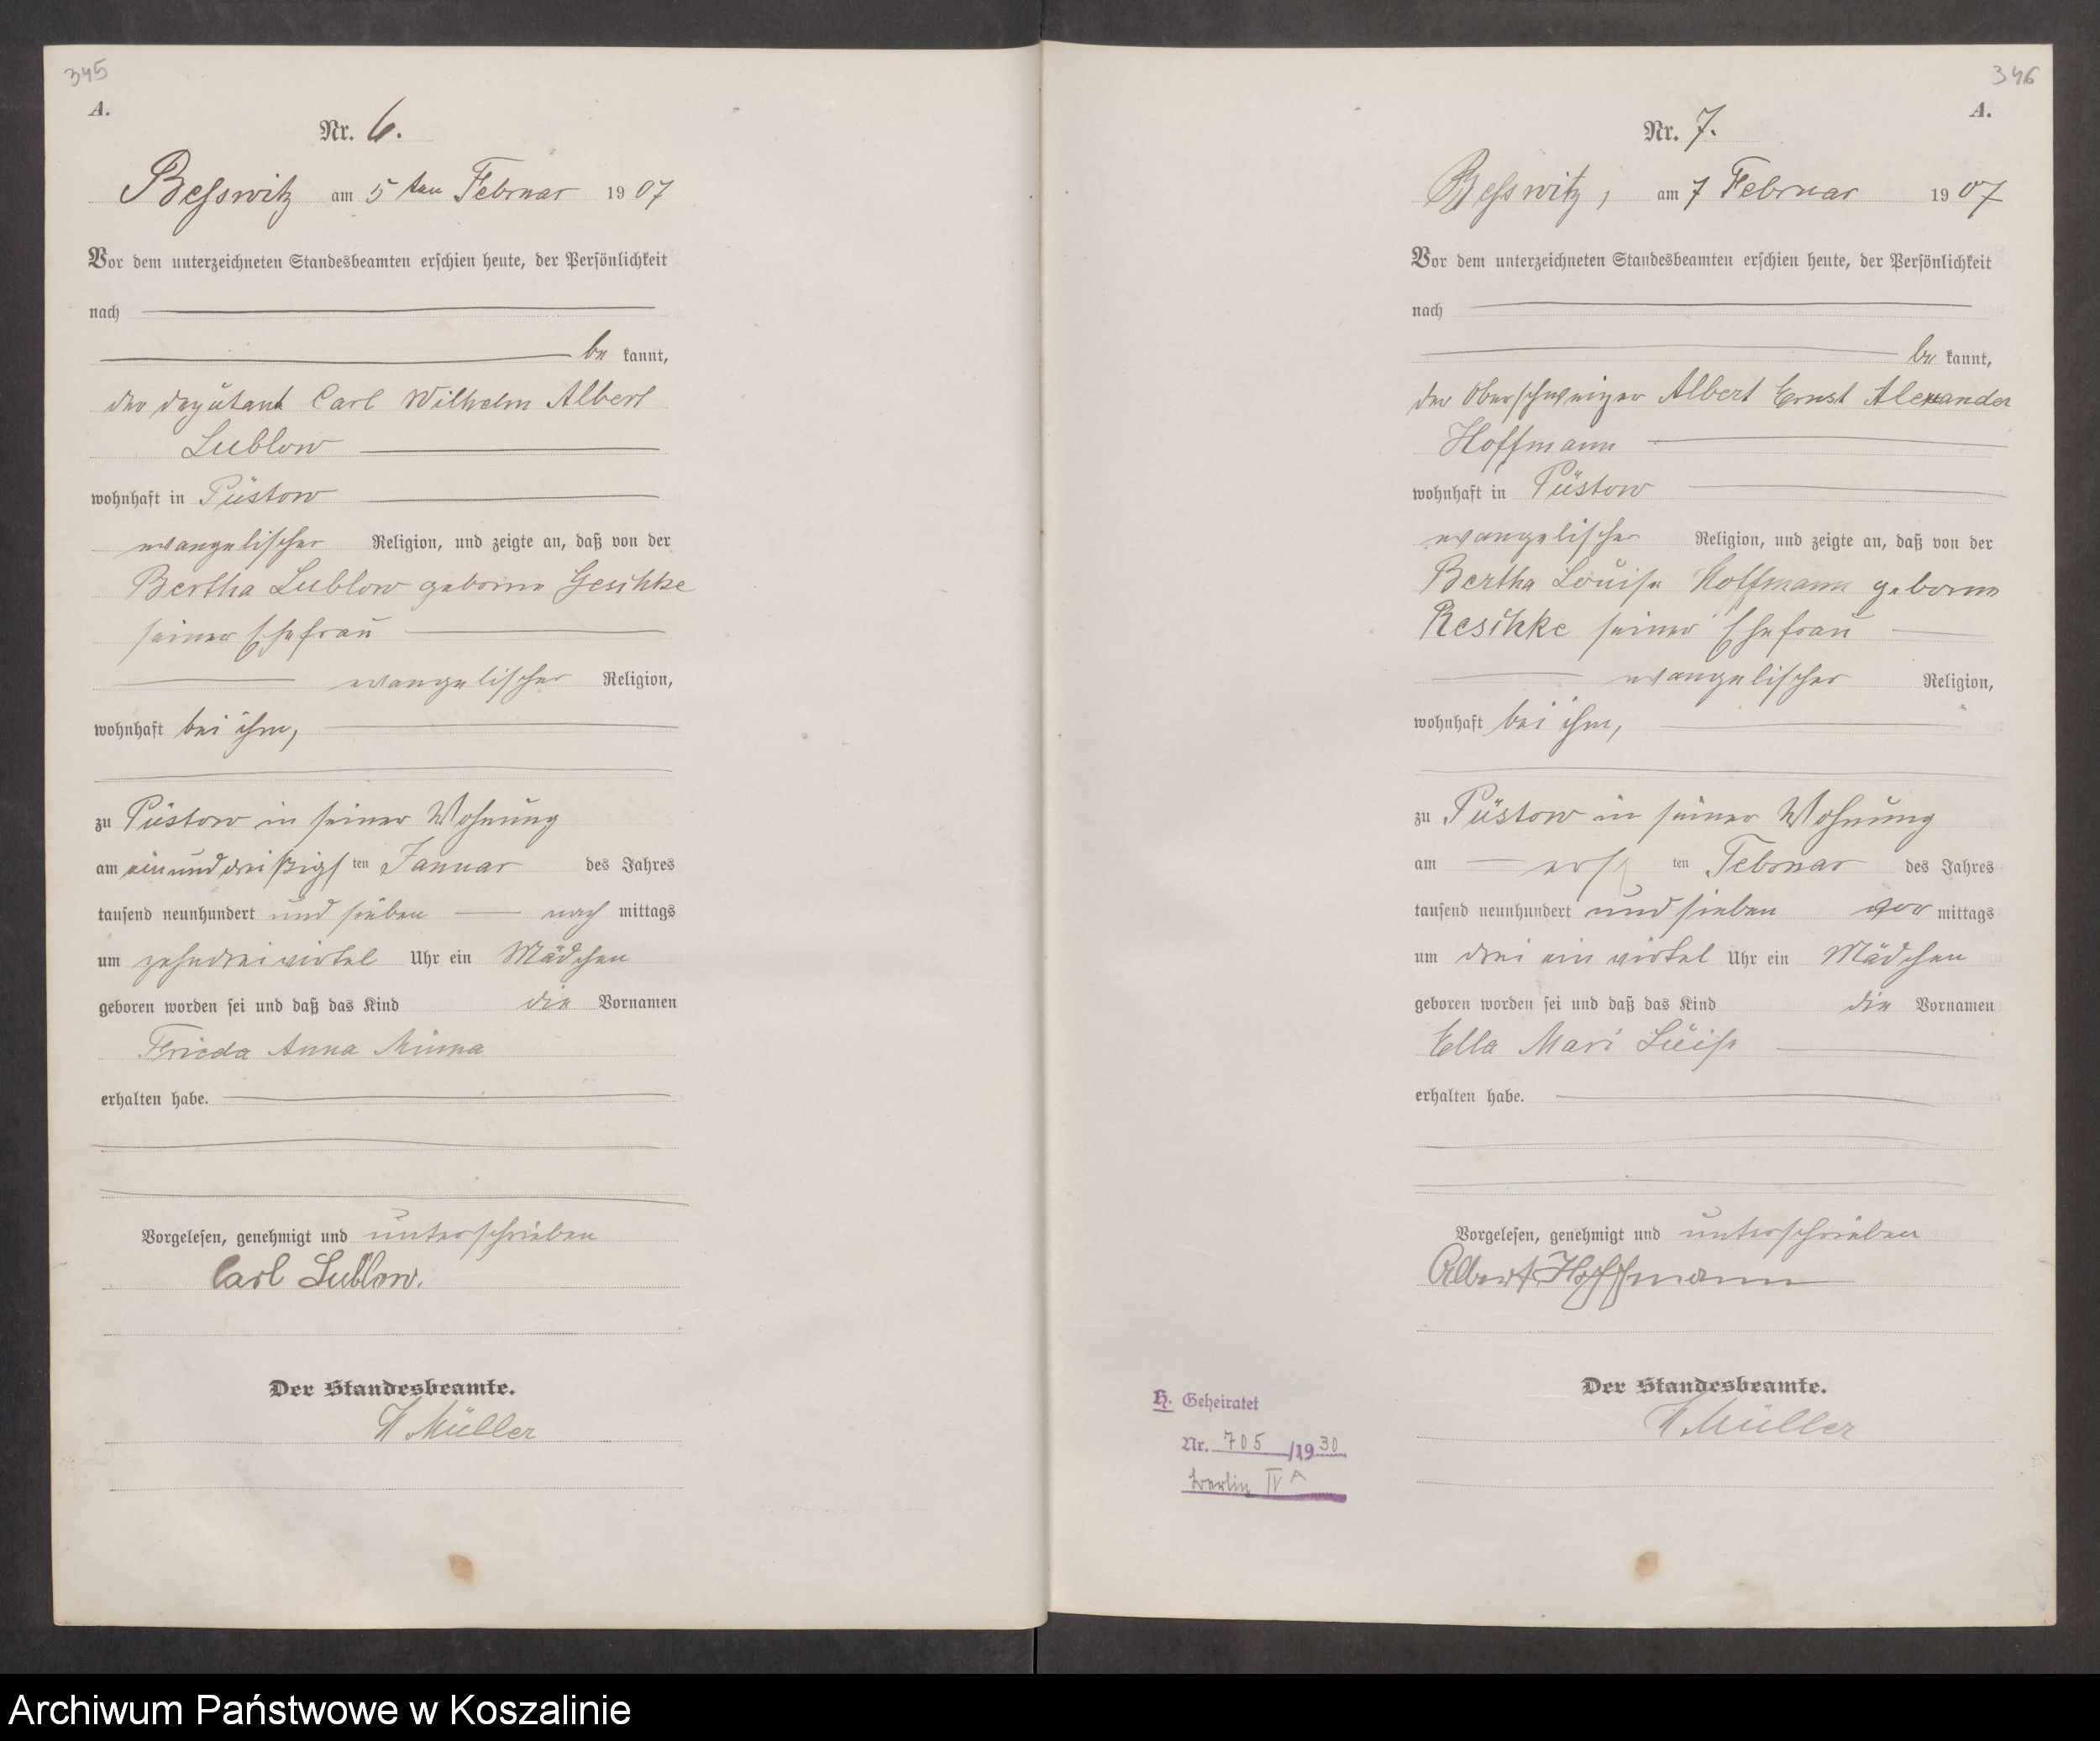 345
A.
Nr. 6.
Besswitz am 5 ten Februar 1907
Vor dem unterzeichneten Standesbeamten erschien heute, der Persönlichkeit
nach
be kannt,
der Carl Wilhelm Albert
Lublow
wohnhaft in Püstow
evangelischer Religion, und zeigte an, daß von der
Bertha Lublow geborne Geschke
seiner Ehefrau
evangelischer Religion,
wohnhaft bei ihm,
zu Püstow in seiner Wohnung
am einunddreißigs ten Januar des Jahres
tausend neunhundert und sieben nach mittags
um zehndreivirtel Uhr ein Mädchen
geboren worden sei und daß das Kind die Vornamen
Frieda Anna Minna
erhalten habe.
Vorgelesen, genehmigt und unterschrieben
Carl Lublow.
Der Standesbeamte.
Müller
346
A.
Nr. 7.
Besswitz, am 7 Februar 1907
Vor dem unterzeichneten Standesbeamten erschien heute, der Persönlichkeit
nach
be kannt,
der Oberschweizer Albert Ernst Alexander
Hoffmann
wohnhaft in Püstow
evangelischer Religion, und zeigte an, daß von der
Bertha Louise Hoffmann geborne
Reschke seiner Ehefrau
evangelischer Religion,
wohnhaft bei ihm,
zu Püstow in seiner Wohnung
am ers ten Februar des Jahres
tausend neunhundert und sieben vor mittags
um drei ein virtel Uhr ein Mädchen
geboren worden sei und daß das Kind die Vornamen
Ella Mari Luise
erhalten habe.
Vorgelesen, genehmigt und unterschrieben
Albert Hoffmann
Der Standesbeamte.
Müller
H. Geheiratet
Nr. 705/1930
Berlin IV A
Archiwum Państwowe w Koszalinie